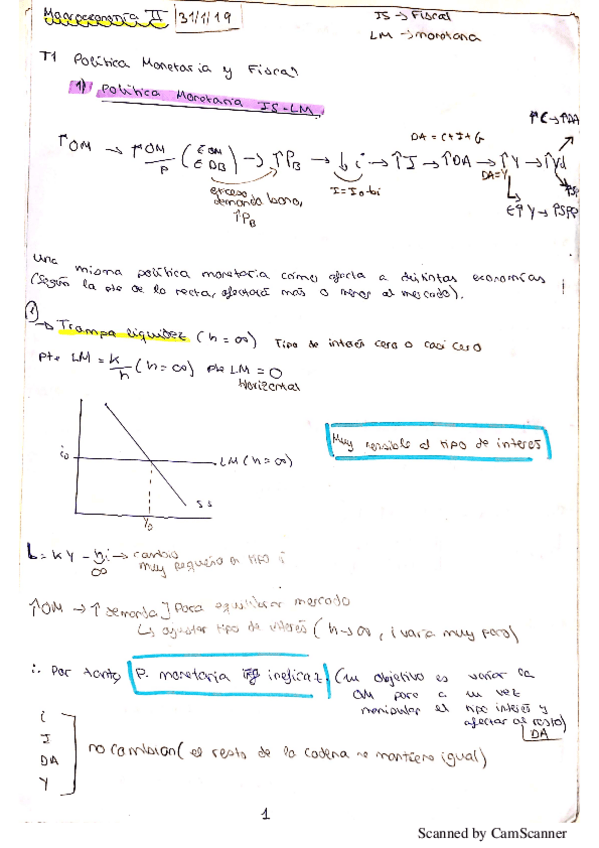 Macroeconomía II 31/1/19
IS → Fiscal
LM → monetaria
T1 Política Monetaria y Fiscal
1) Política Monetaria IS-LM
↑PC → ↑DA
DA = C+I+G
↑OM → ↑OM/P (EOM EDB) → ↑PB → ↓i → ↑I → ↑DA → ↑Y → ↑Yd
exceso demanda bonos, ↑PB
I = I0 - bi
DA = Y
↑Y →
Una misma política monetaria como afecta a distintas economías
(según la pte de la recta, afectará más o menos al mercado).
1
→ Trampa liquidez (h = ∞) Tipo de interés cero o casi cero
Pte LM = k/h (h = ∞) pte LM = 0
Horizontal
i0
LM (h = ∞)
Y0
Muy sensible al tipo de interés
L = KY - hi → cambio
∞ muy pequeño en tipo i
↑OM → ↑demanda] para equilibrar mercado
↳ ajustar tipo de interés (h → ∞, i varía muy poco)
∴ Por tanto, P. monetaria ineficaz. (su objetivo es variar la
OM para a su vez
manipular el tipo interés y
afectar al resto)
DA
i
I
DA
Y
no cambian (el resto de la cadena se mantiene igual)
1
Scanned by CamScanner